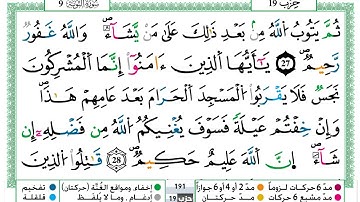 سورة التوبة 9
حزب 19
ثُمَّ يَتُوبُ اللَّهُ مِنۢ بَعْدِ ذَٰلِكَ عَلَىٰ مَنْ يَّشَآءُ ۗ وَاللَّهُ غَفُورٌ
رَّحِيمٌ ۝27 يَـٰٓأَيُّهَا الَّذِينَ ءَامَنُوٓا۟ إِنَّمَا الْمُشْرِكُونَ
نَجَسٌ فَلَا يَقْرَبُوا۟ الْمَسْجِدَ الْحَرَامَ بَعْدَ عَامِهِمْ هَـٰذَا ۚ
وَإِنْ خِفْتُمْ عَيْلَةً فَسَوْفَ يُغْنِيكُمُ اللَّهُ مِن فَضْلِهِۦٓ إِن
شَآءَ ۚ إِنَّ اللَّهَ عَلِيمٌ حَكِيمٌ ۝28 قَـٰتِلُوا۟ الَّذِينَ
مدّ 6 حركات لزوماً مدّ 2 أو 4 أو 6 جوازاً 191 إخفاء، ومواقع الغُنَّة (حركتان) تفخيم
مدّ حركتان حزب 19 إدغام، وما لا يُلفَظ قلقلة